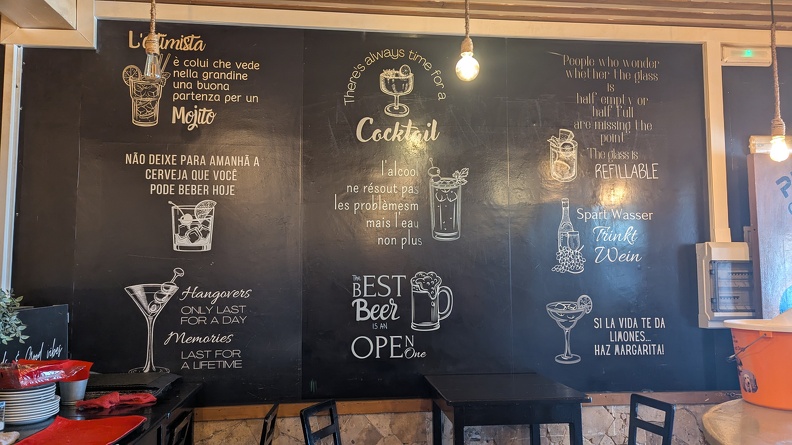 L'ottimista
è colui che vede
nella grandine
una buona
partenza per un
Mojito
NÃO DEIXE PARA AMANHÃ A
CERVEJA QUE VOCÊ
PODE BEBER HOJE
Hangovers
ONLY LAST
FOR A DAY
Memories
LAST FOR
A LIFETIME
There's always time for a
Cocktail
l'alcool
ne résout pas
les problèmesm
mais l'eau
non plus
The
BEST
Beer
IS AN
OPEN One
People who wonder
whether the glass
is
half empty or
half full
are missing the
point
The glass is
REFILLABLE
Spart Wasser
Trinkt
Wein
SI LA VIDA TE DA
LIMONES...
HAZ MARGARITA!
Good vibes